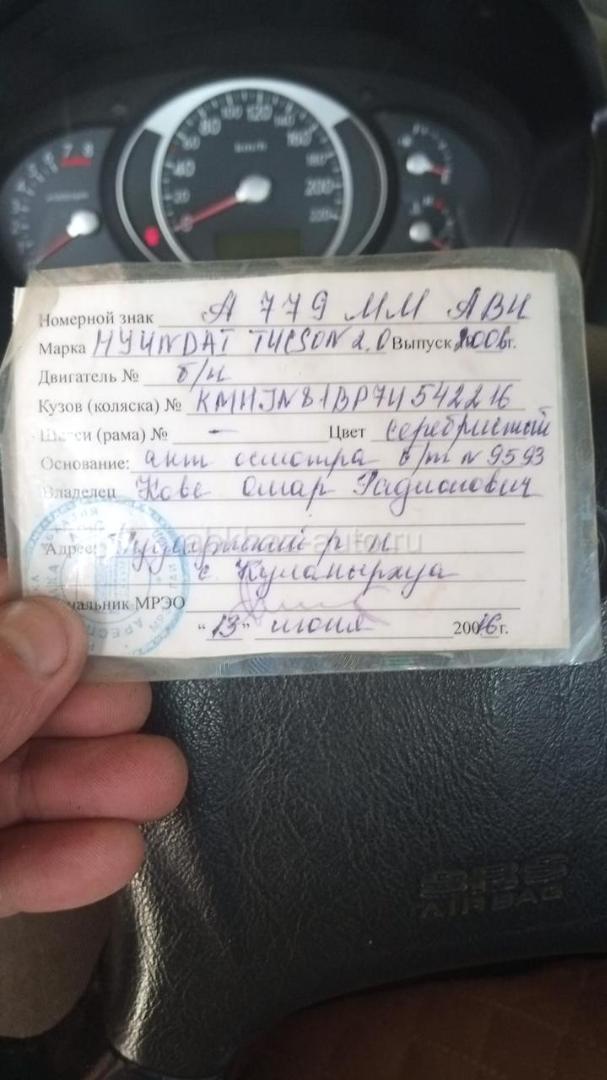 7 8
0 20 40 60 80 100 120 160 180 200 220
km/h
Номерной знак А 779 ММ АВН
Марка HYUNDAI TUCSON 2.0 Выпуск 2006г.
Двигатель № б/н
Кузов (коляска) № KMHJN81BP7U542216
Шасси (рама) № — Цвет серебристый
Основание: акт осмотра б/т № 9593
Владелец Кове Омар Радионович
Адрес: Гудаутский р-н
с. Куланырхуа
Начальник МРЭО
"13" июня 20016г.
SRS
AIRBAG